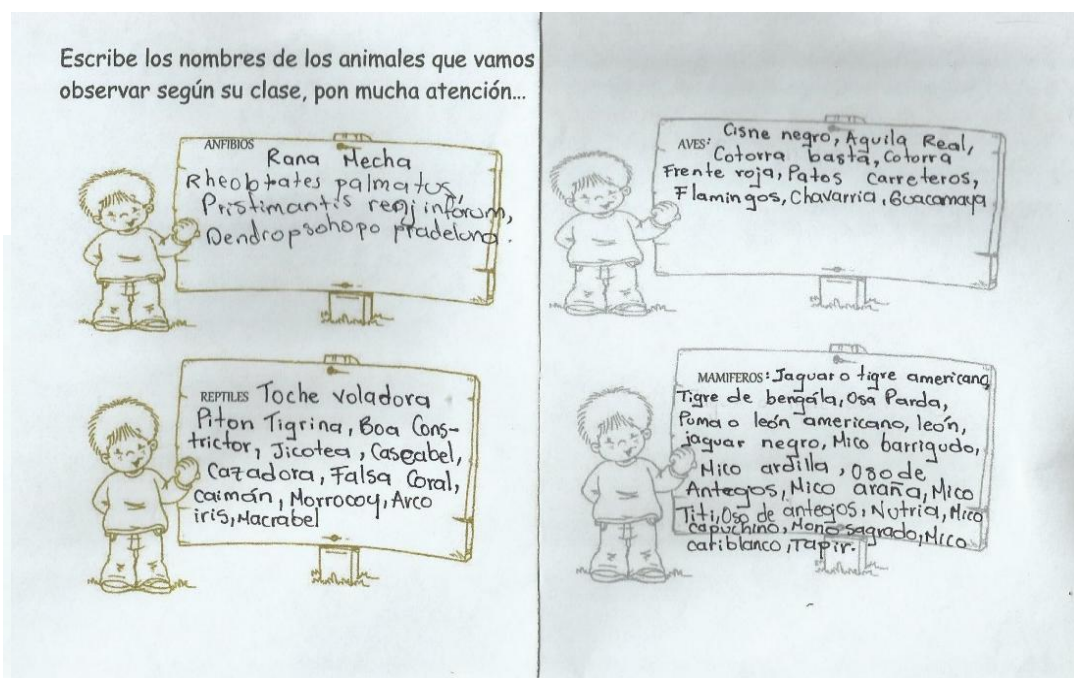 Escribe los nombres de los animales que vamos
observar según su clase, pon mucha atención...
ANFIBIOS
Rana Mecha
Rheobtates palmatus,
Pristimantis renjinforum,
Dendropsohopo pradelona.
REPTILES Toche voladora
Piton Tigrina, Boa Cons-
trictor, Jicotea, Cascabel,
Cazadora, Falsa Coral,
caimán, Morrocoy, Arco
iris, Macrabel
AVES: Cisne negro, Aquila Real,
Cotorra basta, Cotorra
Frente roja, Patos Carreteros,
Flamingos, Chavarria, Guacamaya
MAMIFEROS: Jaguar o tigre americano,
Tigre de bengala, Osa Parda,
Puma o león americano, león,
jaguar negro, Mico barrigudo,
Mico ardilla, Oso de
Anteojos, Mico araña, Mico
Titi, Oso de anteojos, Nutria, Mico
capuchino, Mono sagrado, Mico
cariblanco, Tapir.